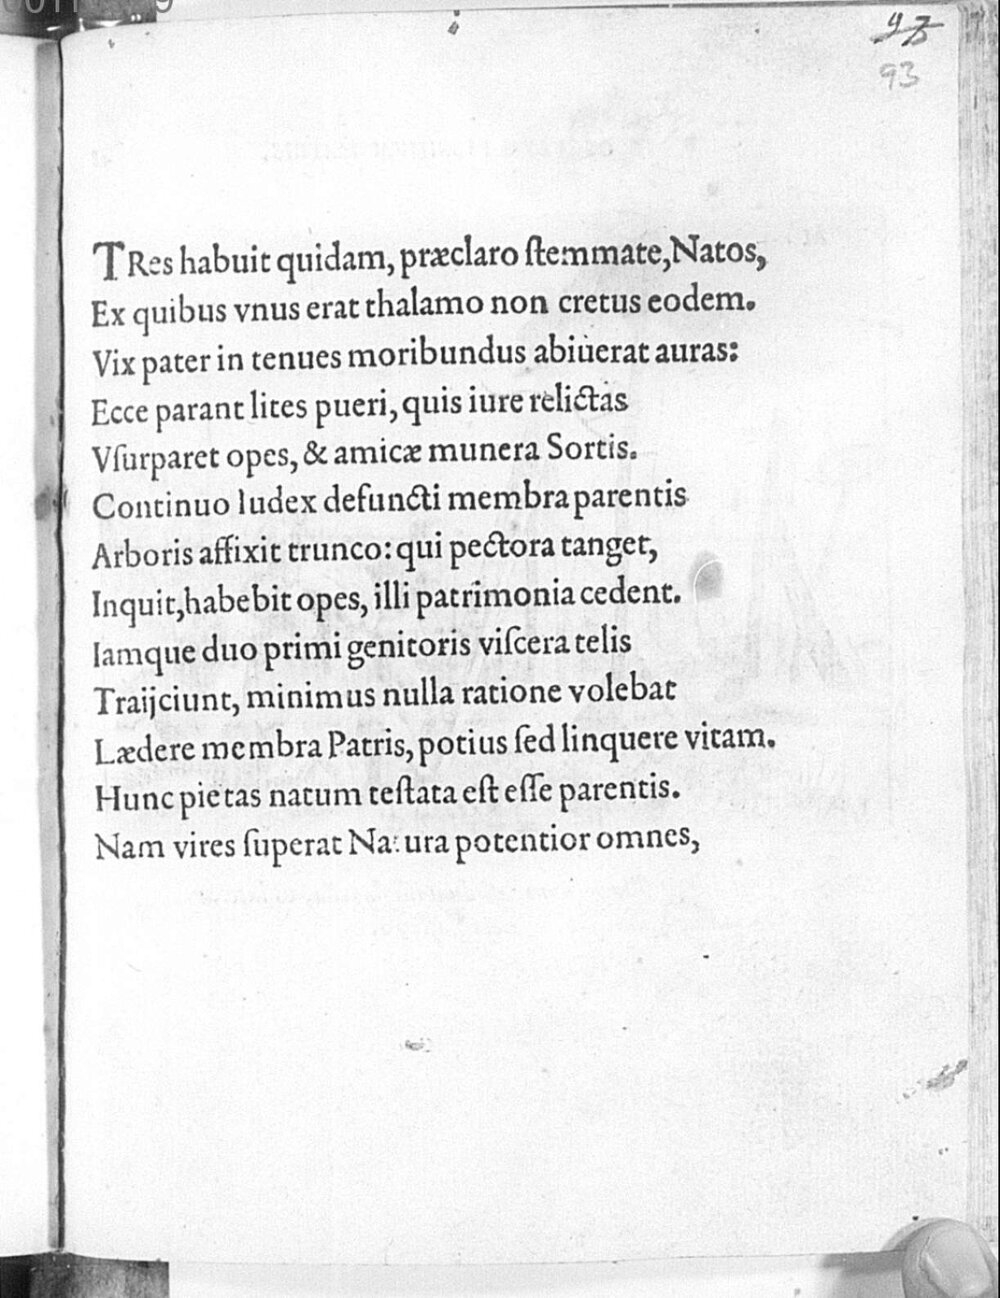 93
TRes habuit quidam, præclaro ſtemmate, Natos,
Ex quibus vnus erat thalamo non cretus eodem.
Vix pater in tenues moribundus abiuerat auras:
Ecce parant lites pueri, quis iure relictas
Vſurparet opes, & amicæ munera Sortis.
Continuo Iudex defuncti membra parentis
Arboris affixit trunco: qui pectora tanget,
Inquit, habebit opes, illi patrimonia cedent.
Iamque duo primi genitoris viſcera telis
Traijciunt, minimus nulla ratione volebat
Lædere membra Patris, potius ſed linquere vitam.
Hunc pietas natum teſtata eſt eſſe parentis.
Nam vires ſuperat Natura potentior omnes,